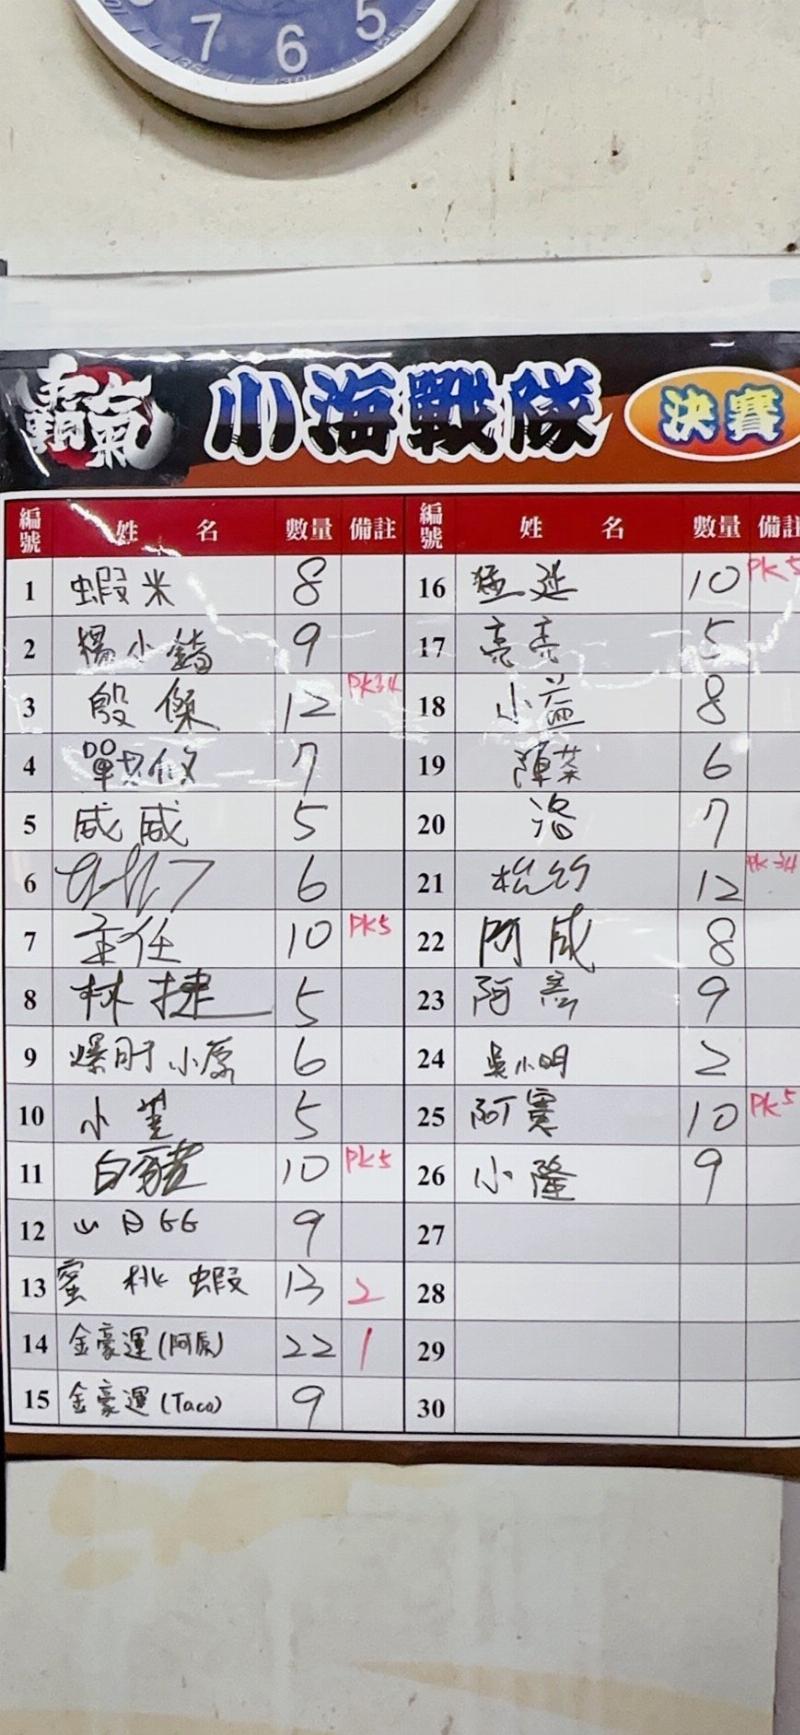 7 6 5
霸氣 小海戰隊 決賽
編號 姓名 數量 備註 編號 姓名 數量 備註
1 蝦米 8
2 楊小 9
3 殷傑 12 PK34
4 戰 7
5 威威 5
6 6
7 主任 10 PK5
8 林捷 5
9 爆肝小原 6
10 小 5
11 白豬 10 PK5
12 山日GG 9
13 蜜桃蝦 13 2
14 金豪運(阿原) 22 1
15 金豪運(Taco) 9
16 猛延 10 PK5
17 亮亮 5
18 小益 8
19 陣 6
20 洛 7
21 松竹 12 PK34
22 阿威 8
23 阿 9
24 吳小明 2
25 阿賓 10 PK5
26 小隆 9
27
28
29
30